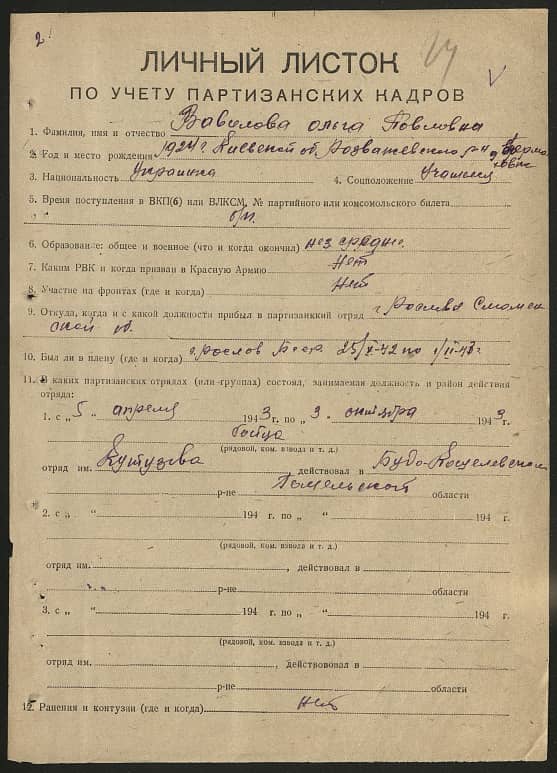 2
ЛИЧНЫЙ ЛИСТОК
ПО УЧЕТУ ПАРТИЗАНСКИХ КАДРОВ
1. Фамилия, имя и отчество Вавилова Ольга Павловна
2. Год и место рождения 1924 г Киевской об. Розважевского р-н
3. Национальность Украинка 4. Соцположение Учащаяся
5. Время поступления в ВКП(б) или ВЛКСМ, № партийного или комсомольского билета
б/п.
6. Образование: общее и военное (что и когда окончил) нез средне.
7. Каким РВК и когда призван в Красную Армию Нет
8. Участие на фронтах (где и когда) Нет
9. Откуда, когда и с какой должности прибыл в партизанский отряд г. Рославль Смолен
ской об.
10. Был ли в плену (где и когда) г. Рослов
11. В каких партизанских отрядах (или группах) состоял, занимаемая должность и район действия
отряда:
1. с „ 5 “ апреля 1943 г. по „ 3 “ октября 1943 г.
бойца
(рядовой, ком. взвода и т. д.)
отряд им. Кутузова, действовал в Будо-Кошелевском
р-не Гомельской области
2. с „ “ 194 г. по „ “ 194 г.
(рядовой, ком. взвода и т. д.)
отряд им. , действовал в
р-не области
3. с „ “ 194 г. по „ “ 194 г.
(рядовой, ком. взвода и т. д.)
отряд им. , действовал в
р-не области
12. Ранения и контузии (где и когда) Нет